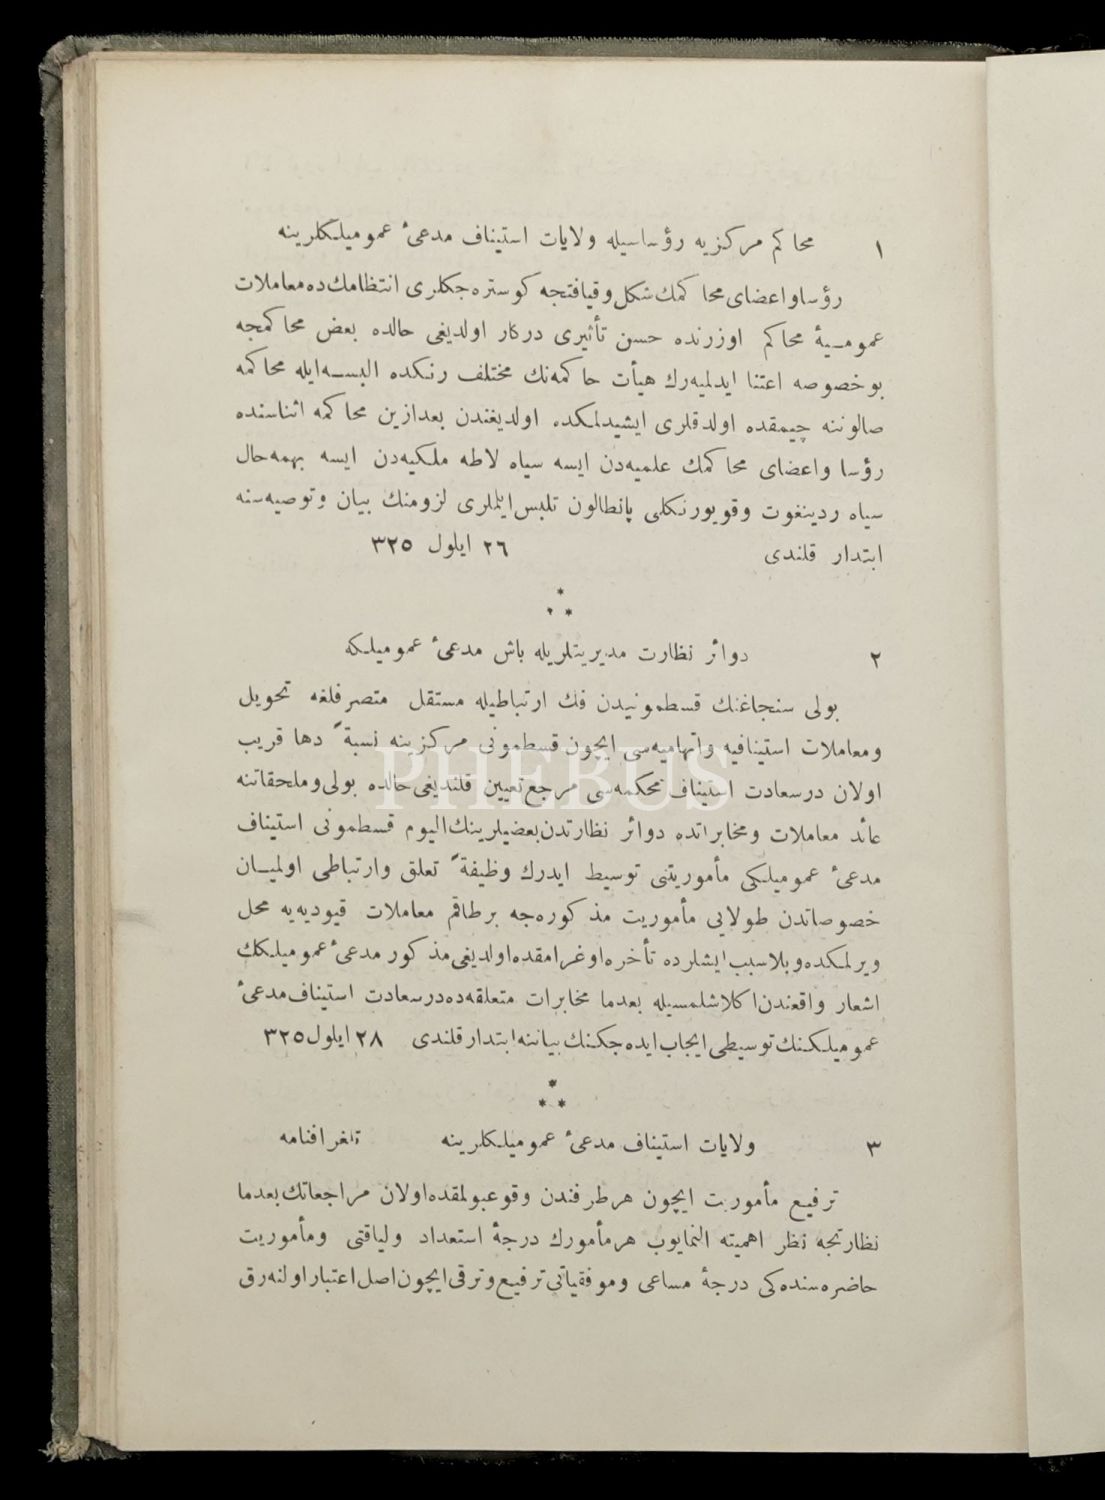 ١ محاكم مركزيه رؤساسيله ولايات استيناف مدعىٔ عموميلكلرينه
رؤسا واعضاى محاكمك شكل وقيافتجه كوستره جكلرى انتظامك ده معاملات
عموميهٔ محاكم اوزرنده حسن تأثيرى دركار اولديغى حالده بعض محاكمجه
بو خصوصه اعتنا ايدلميه رك هيأت حاكمه نك مختلف رنكده البسه ايله محاكمه
صالوننه چيمقده اولدقلرى ايشيدلمكده اولديغندن بعدازين محاكمه اثناسنده
رؤسا واعضاى محاكمك علميه دن ايسه سياه لاطه ملكيه دن ايسه بهمه حال
سياه ردينغوت وقويورنكلى پانطالون تلبس ايتملرى لزومنك بيان وتوصيه سنه
ابتدار قلندى ٢٦ ايلول ٣٢٥
٢ دوائر نظارت مديريتلريله باش مدعىٔ عموميلكه
بولى سنجاغنك قسطمونيدن فك ارتباطيله مستقل متصرفلغه تحويل
ومعاملات استينافيه واتهاميه سى ايچون قسطمونى مركزينه نسبةً دها قريب
اولان درسعادت استيناف محكمه سى مرجع تعيين قلنديغى حالده بولى وملحقاتنه
عائد معاملات ومخابراتده دوائر نظارتدن بعضيلرينك اليوم قسطمونى استيناف
مدعىٔ عموميلكى مأموريتنى توسيط ايدرك وظيفةً تعلق وارتباطى اولميان
خصوصاتدن طولايى مأموريت مذكوره جه برطاقم معاملات قيوديه يه محل
ويرلمكده وبلاسبب ايشلرده تأخره اوغرامقده اولديغى مذكور مدعىٔ عموميلكك
اشعار واقعندن اكلاشلمسيله بعدما مخابرات متعلقه ده درسعادت استيناف مدعىٔ
عموميلكنك توسيطى ايجاب ايده جكنك بياننه ابتدار قلندى ٢٨ ايلول ٣٢٥
٣ ولايات استيناف مدعىٔ عموميلكلرينه تلغرافنامه
ترفيع مأموريت ايچون هر طرفندن وقوعبولمقده اولان مراجعاتك بعدما
نظارتجه نظر اهميته النمايوب هر مأمورك درجهٔ استعداد ولياقتى ومأموريت
حاضره سنده كى درجهٔ مساعى وموفقياتى ترفيع وترقى ايچون اصل اعتبار اولنه رق
PHEBUS